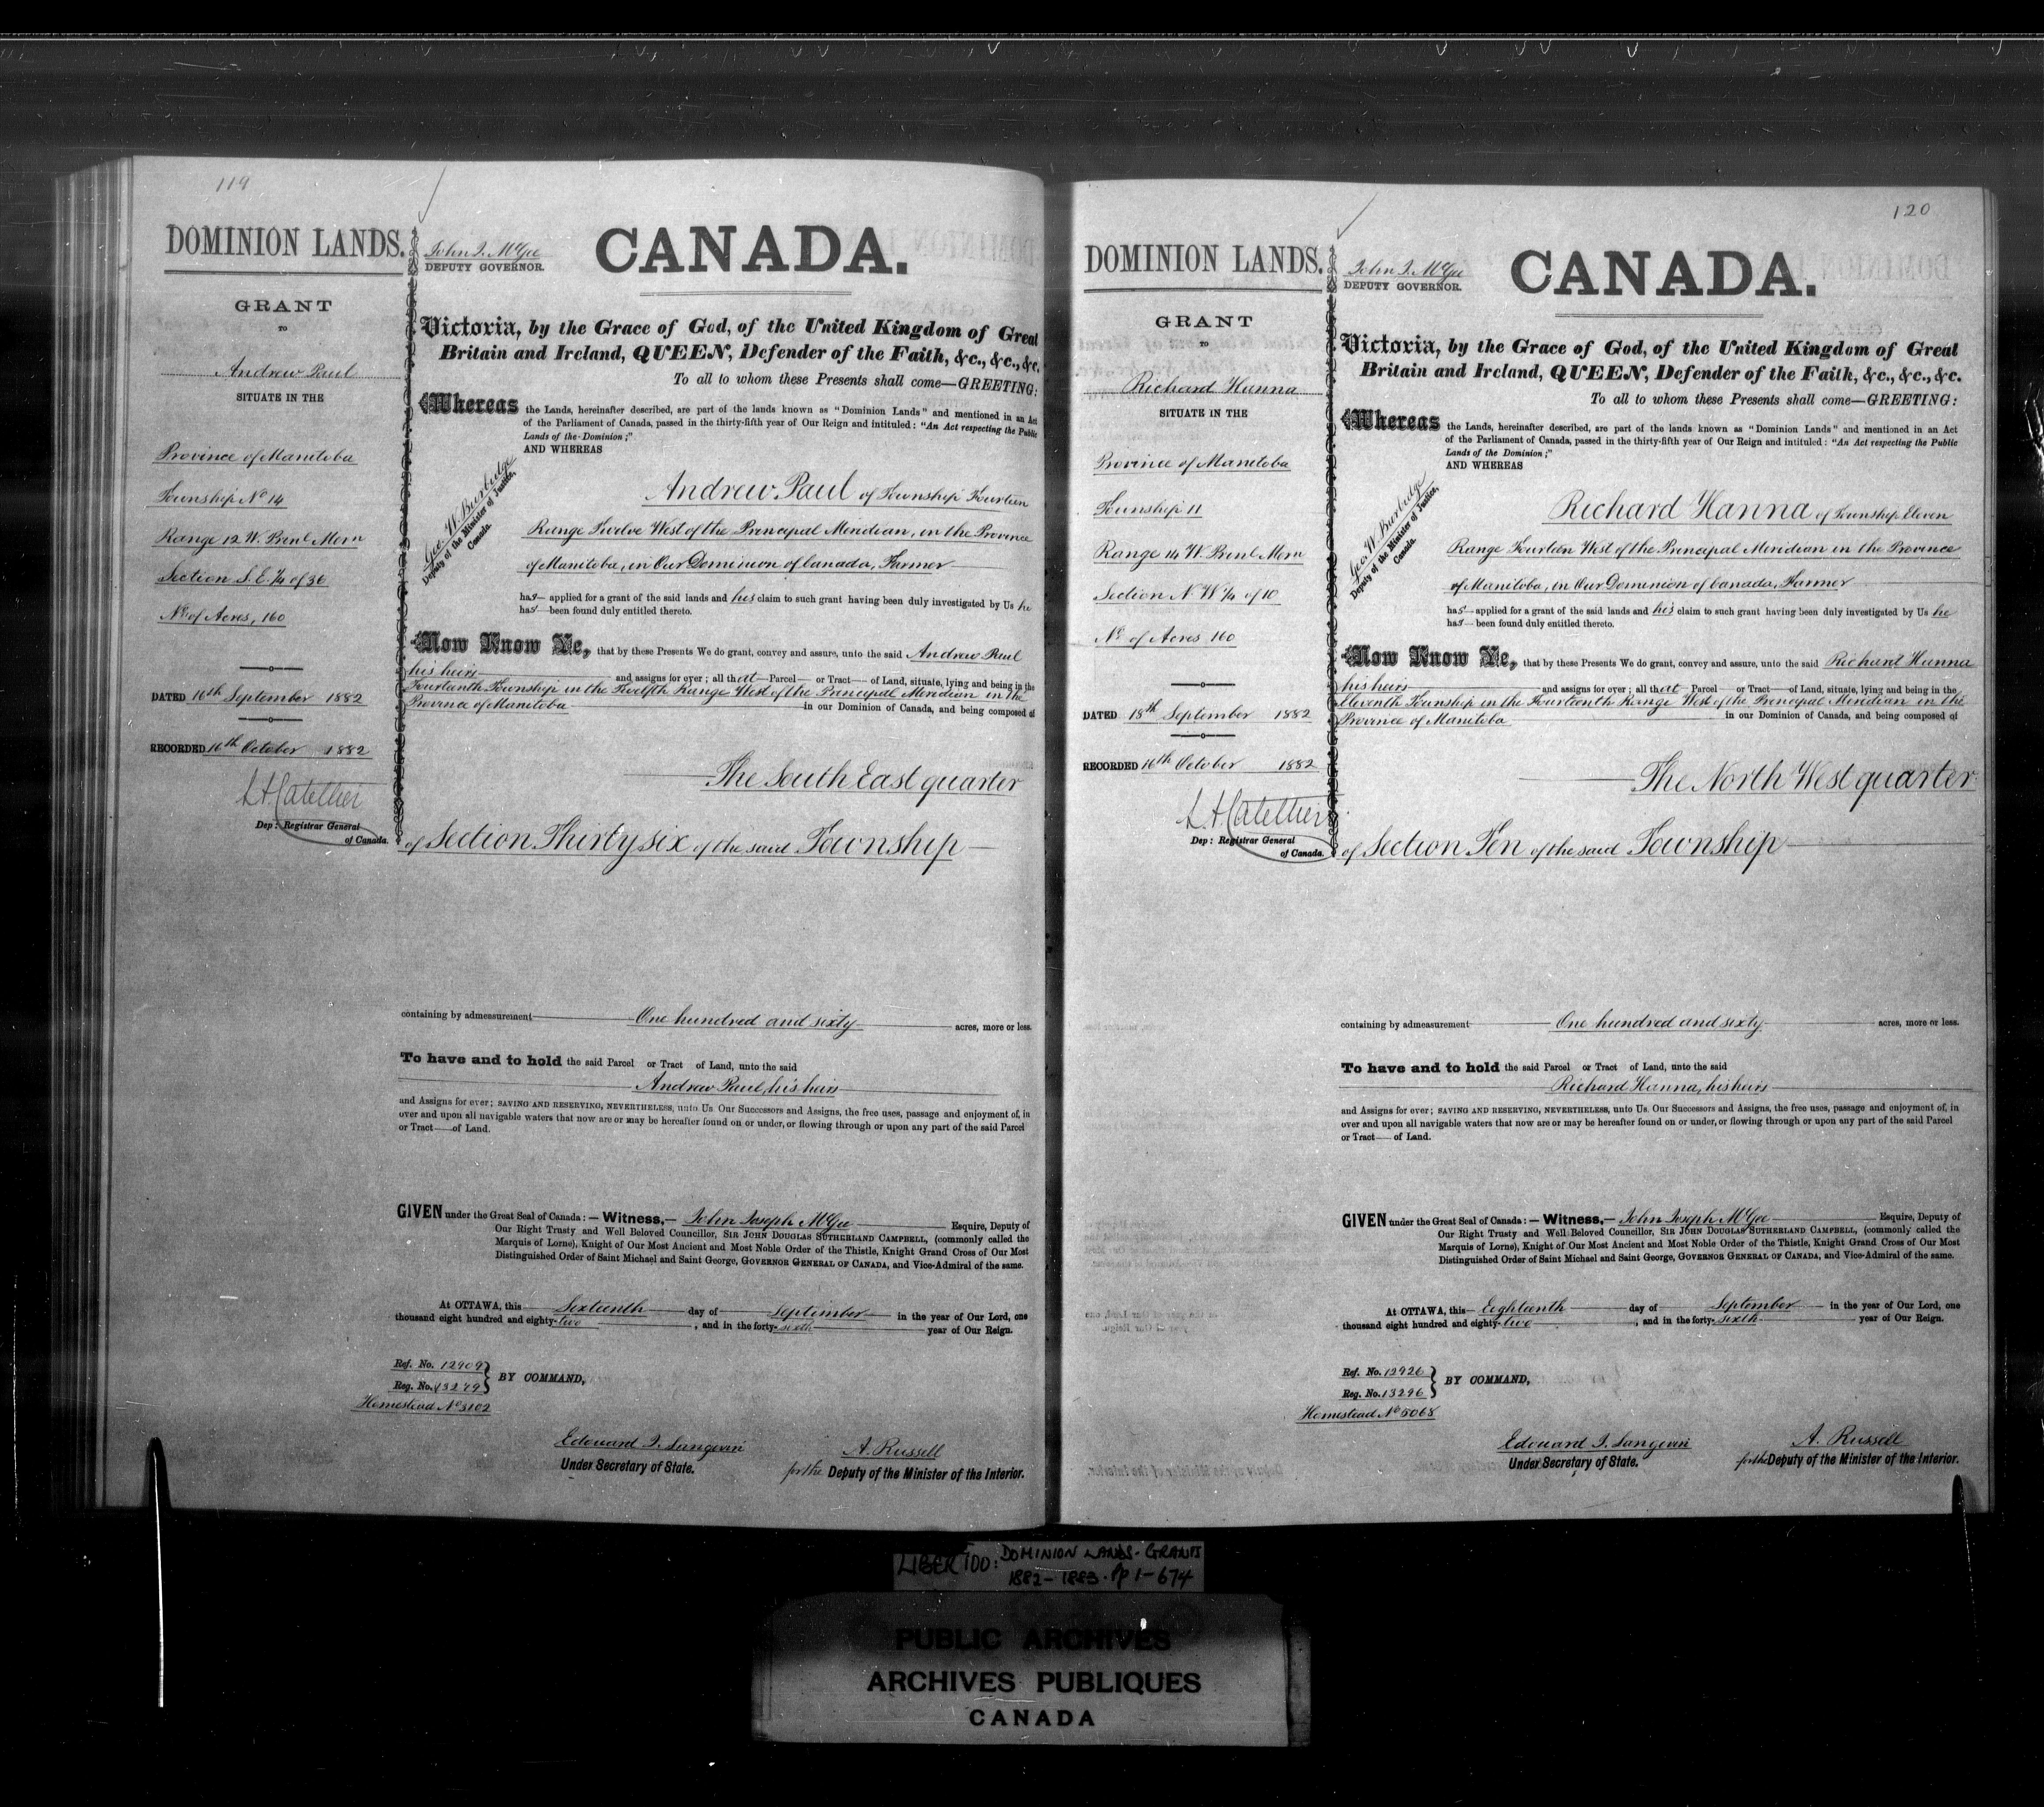 119
DOMINION LANDS.
GRANT
TO
Andrew Paul
SITUATE IN THE
Province of Manitoba
Township No 14
Range 12 W. Prinl Mern
Section S. E. 1/4 of 36
No of Acres, 160
DATED 16th September 1882
RECORDED 16th October 1882
Dep: Registrar General
of Canada.
John J. McGee
DEPUTY GOVERNOR.
CANADA.
Victoria, by the Grace of God, of the United Kingdom of Great
Britain and Ireland, QUEEN, Defender of the Faith, &c., &c., &c.
To all to whom these Presents shall come—GREETING:
Whereas the Lands, hereinafter described, are part of the lands known as "Dominion Lands" and mentioned in an Act
of the Parliament of Canada, passed in the thirty-fifth year of Our Reign and intituled: "An Act respecting the Public
Lands of the Dominion;"
AND WHEREAS
Geo. W. Burbidge
Deputy of the Minister of Justice,
Canada.
Andrew Paul of Township Fourteen
Range Twelve West of the Principal Meridian, in the Province
of Manitoba, in Our Dominion of Canada, Farmer
has applied for a grant of the said lands and his claim to such grant having been duly investigated by Us he
has been found duly entitled thereto.
Now Know Ye, that by these Presents We do grant, convey and assure, unto the said Andrew Paul
his heirs and assigns for ever; all that Parcel or Tract of Land, situate, lying and being in the
Fourteenth Township in the Twelfth Range West of the Principal Meridian in the
Province of Manitoba in our Dominion of Canada, and being composed of
The South East quarter
of Section Thirty six of the said Township
containing by admeasurement One hundred and sixty acres, more or less.
To have and to hold the said Parcel or Tract of Land, unto the said
Andrew Paul, his heirs
and Assigns for ever; SAVING AND RESERVING, NEVERTHELESS, unto Us Our Successors and Assigns, the free uses, passage and enjoyment of, in
over and upon all navigable waters that now are or may be hereafter found on or under, or flowing through or upon any part of the said Parcel
or Tract of Land.
GIVEN under the Great Seal of Canada:—Witness,—John Joseph McGee Esquire, Deputy of
Our Right Trusty and Well Beloved Councillor, SIR JOHN DOUGLAS SUTHERLAND CAMPBELL, (commonly called the
Marquis of Lorne), Knight of Our Most Ancient and Most Noble Order of the Thistle, Knight Grand Cross of Our Most
Distinguished Order of Saint Michael and Saint George, GOVERNOR GENERAL OF CANADA, and Vice-Admiral of the same.
At OTTAWA, this Sixteenth day of September in the year of Our Lord, one
thousand eight hundred and eighty-two, and in the forty-sixth year of Our Reign.
Ref. No. 12909
Reg. No. 13279
BY COMMAND,
Homestead No 3102
Edouard J. Langevin
Under Secretary of State.
A. Russell
for the Deputy of the Minister of the Interior.
120
DOMINION LANDS.
GRANT
TO
Richard Hanna
SITUATE IN THE
Province of Manitoba
Township 11
Range 14 W. Prinl Mern
Section N. W 1/4 of 10
No of Acres 160
DATED 18th September 1882
RECORDED 16th October 1882
Dep: Registrar General
of Canada.
John J. McGee
DEPUTY GOVERNOR.
CANADA.
Victoria, by the Grace of God, of the United Kingdom of Great
Britain and Ireland, QUEEN, Defender of the Faith, &c., &c., &c.
To all to whom these Presents shall come—GREETING:
Whereas the Lands, hereinafter described, are part of the lands known as "Dominion Lands" and mentioned in an Act
of the Parliament of Canada, passed in the thirty-fifth year of Our Reign and intituled: "An Act respecting the Public
Lands of the Dominion;"
AND WHEREAS
Geo. W. Burbidge
Deputy of the Minister of Justice,
Canada.
Richard Hanna of Township Eleven
Range Fourteen West of the Principal Meridian in the Province
of Manitoba, in Our Dominion of Canada, Farmer
has applied for a grant of the said lands and his claim to such grant having been duly investigated by Us he
has been found duly entitled thereto.
Now Know Ye, that by these Presents We do grant, convey and assure, unto the said Richard Hanna
his heirs and assigns for ever; all that Parcel or Tract of Land, situate, lying and being in the
Eleventh Township in the Fourteenth Range West of the Principal Meridian in the
Province of Manitoba in our Dominion of Canada, and being composed of
The North West quarter
of Section Ten of the said Township
containing by admeasurement One hundred and sixty acres, more or less.
To have and to hold the said Parcel or Tract of Land, unto the said
Richard Hanna, his heirs
and Assigns for ever; SAVING AND RESERVING, NEVERTHELESS, unto Us. Our Successors and Assigns, the free uses, passage and enjoyment of, in
over and upon all navigable waters that now are or may be hereafter found on or under, or flowing through or upon any part of the said Parcel
or Tract of Land.
GIVEN under the Great Seal of Canada:—Witness,—John Joseph McGee Esquire, Deputy of
Our Right Trusty and Well Beloved Councillor, SIR JOHN DOUGLAS SUTHERLAND CAMPBELL, (commonly called the
Marquis of Lorne), Knight of Our Most Ancient and Most Noble Order of the Thistle, Knight Grand Cross of Our Most
Distinguished Order of Saint Michael and Saint George, GOVERNOR GENERAL OF CANADA, and Vice-Admiral of the same.
At OTTAWA, this Eighteenth day of September in the year of Our Lord, one
thousand eight hundred and eighty-two, and in the forty-sixth year of Our Reign.
Ref. No. 12926
Reg. No. 13296
BY COMMAND,
Homestead No 5068
Edouard J. Langevin
Under Secretary of State.
A. Russell
for the Deputy of the Minister of the Interior.
LIBER 100: DOMINION LANDS-GRANTS
1882-1883. Pp 1-674
PUBLIC ARCHIVES
ARCHIVES PUBLIQUES
CANADA